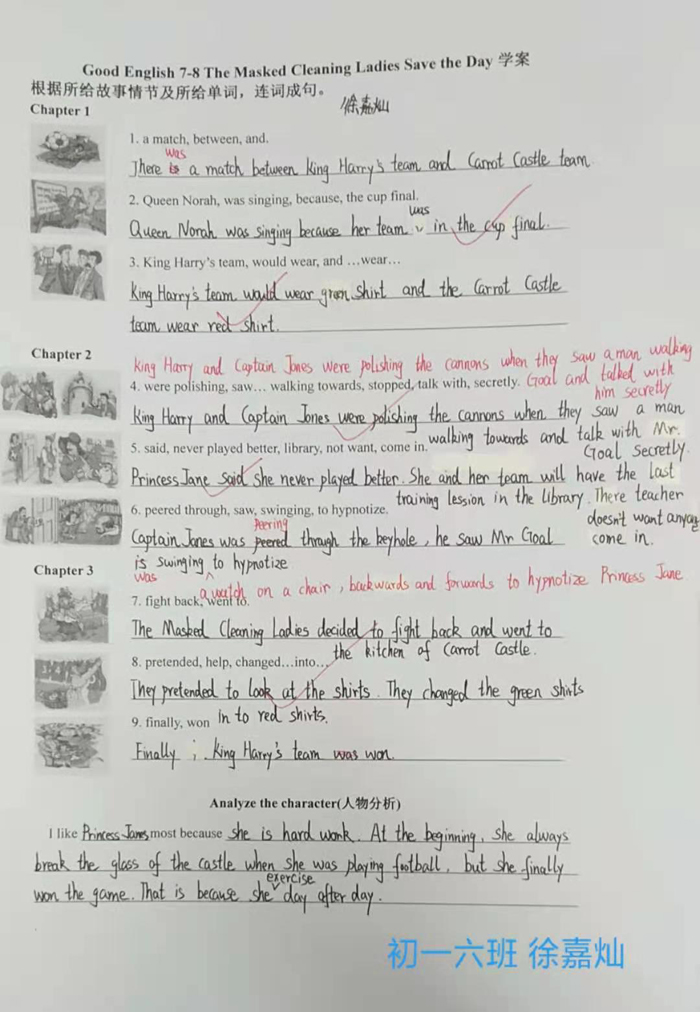 Good English 7-8 The Masked Cleaning Ladies Save the Day 学案
根据所给故事情节及所给单词，连词成句。
徐嘉灿
Chapter 1
1. a match, between, and.
was
There is a match between King Harry's team and Carrot Castle team.
2. Queen Norah, was singing, because, the cup final.
was
Queen Norah was singing because her team in the cup final.
3. King Harry's team, would wear, and …wear…
King Harry's team would wear green shirt and the Carrot Castle
team wear red shirt.
Chapter 2
King Harry and Captain Jones were polishing the cannons when they saw a man walking
4. were polishing, saw… walking towards, stopped, talk with, secretly. Goal and talked with
him secretly
King Harry and Captain Jones were polishing the cannons when they saw a man
walking towards and talk with Mr.
Goal secretly.
5. said, never played better, library, not want, come in.
Princess Jane said she never played better. She and her team will have the last
training lession in the library. There teacher
doesn't want anyone
come in.
6. peered through, saw, swinging, to hypnotize.
Peering
Captain Jones was peered through the keyhole, he saw Mr Goal
is swinging to hypnotize
was
a watch on a chair, backwards and forwards to hypnotize Princess Jane
Chapter 3
7. fight back, went to.
The Masked Cleaning Ladies decided to fight back and went to
the kitchen of Carrot Castle.
8. pretended, help, changed…into…
They pretended to look at the shirts. They changed the green shirts
in to red shirts.
9. finally, won
Finally, King Harry's team was won.
Analyze the character(人物分析)
I like Princess Janes most because she is hard work. At the beginning, she always
break the glass of the castle when she was playing football, but she finally
exercise
won the game. That is because she day after day.
初一六班 徐嘉灿